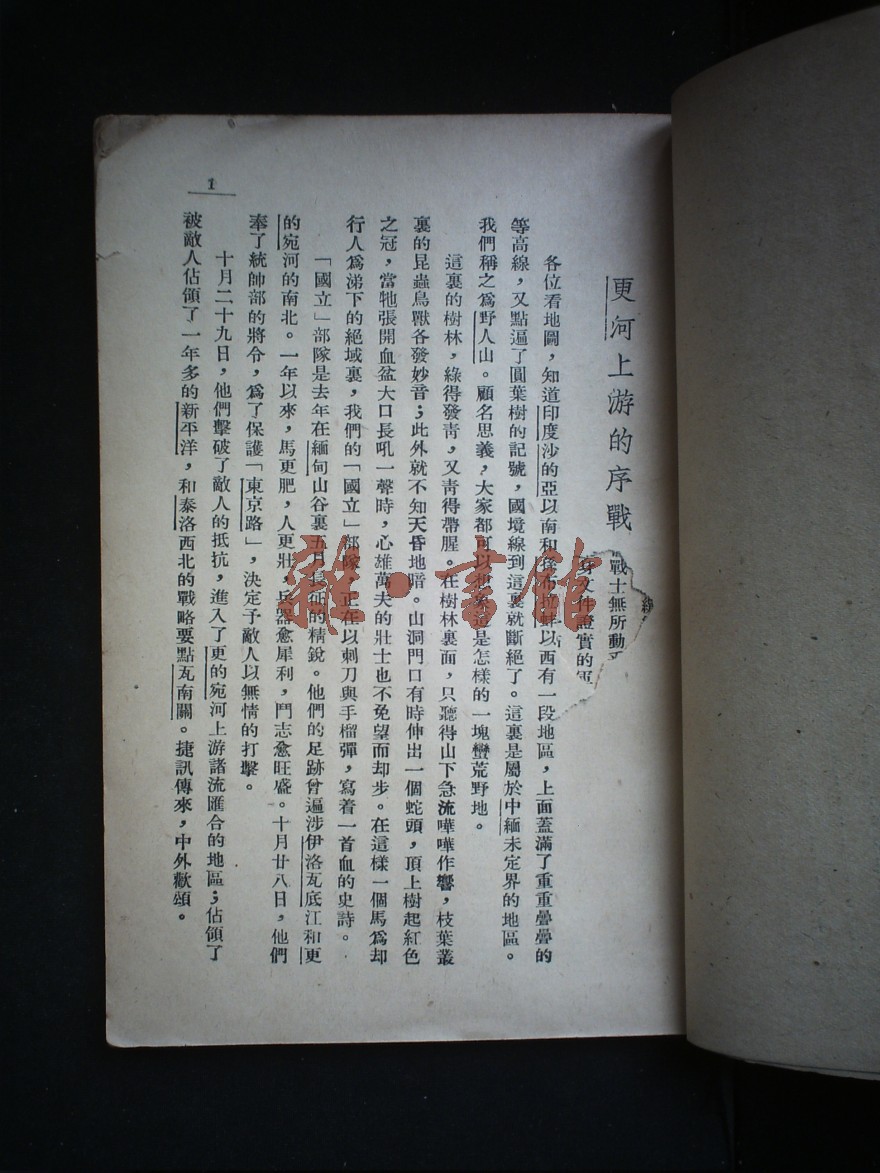 更河上游的序戰
戰士無所動
文件證實的
各位看地圖，知道印度沙的亞以南和孫布拉蚌以西有一段地區，上面蓋滿了重重疊疊的
等高線，又點遍了圓葉樹的記號，國境線到這裏就斷絕了。這裏是屬於中緬未定界的地區。
我們稱之爲野人山。顧名思義，大家都可以想象這是怎樣的一塊蠻荒野地。
這裏的樹林，綠得發青，又青得帶腥。在樹林裏面，只聽得山下急流嘩嘩作響，枝葉叢
裏的昆蟲鳥獸各發妙音；此外就不知天昏地暗。山洞門口有時伸出一個蛇頭，頂上樹起紅色
之冠，當牠張開血盆大口長吼一聲時，心雄萬夫的壯士也不免望而却步。在這樣一個馬爲却
行人爲涕下的絕域裏，我們的「國立」部隊，正在以刺刀與手榴彈，寫着一首血的史詩。
「國立」部隊是去年在緬甸山谷裏五月長征的精銳。他們的足跡曾遍涉伊洛瓦底江和更
的宛河的南北。一年以來，馬更肥，人更壯，兵器愈犀利，鬥志愈旺盛。十月廿八日，他們
奉了統帥部的將令，爲了保護「東京路」，決定予敵人以無情的打擊。
十月二十九日，他們擊破了敵人的抵抗，進入了更的宛河上游諸流匯合的地區；佔領了
被敵人佔領了一年多的新平洋，和泰洛西北的戰略要點瓦南關。捷訊傳來，中外歡頌。
1
雜·書館